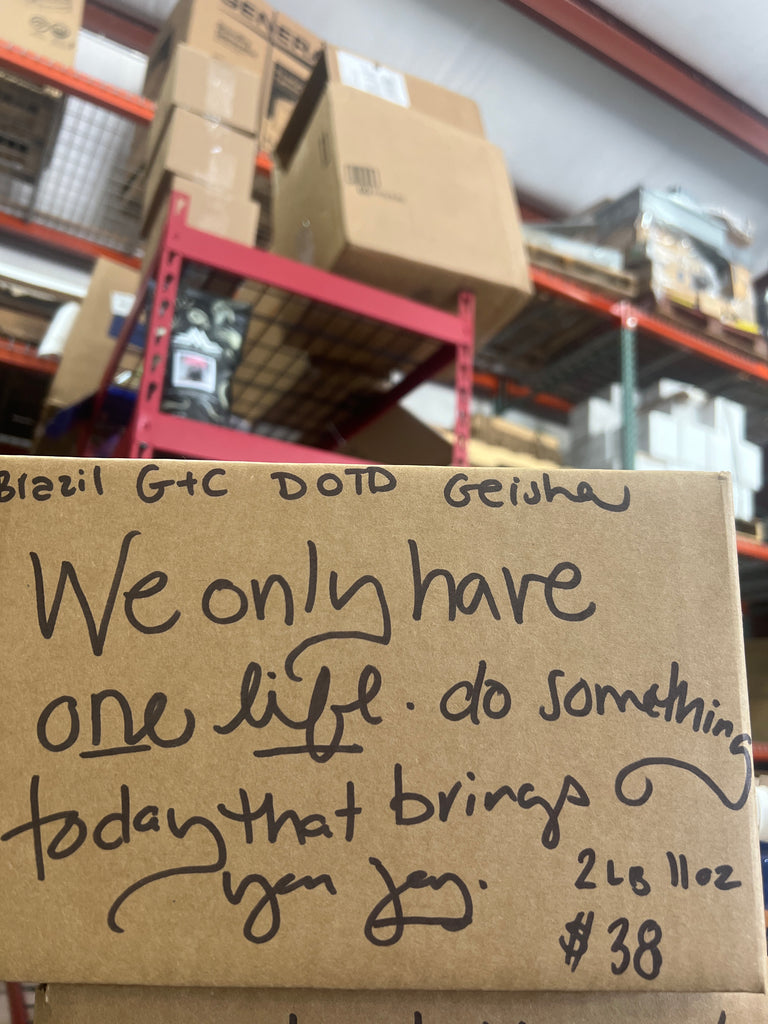 GENERA
Brazil G+C DOTD Geisha
We only have
one life. do something
today that brings
you joy.
2 LB 11 oz
$38